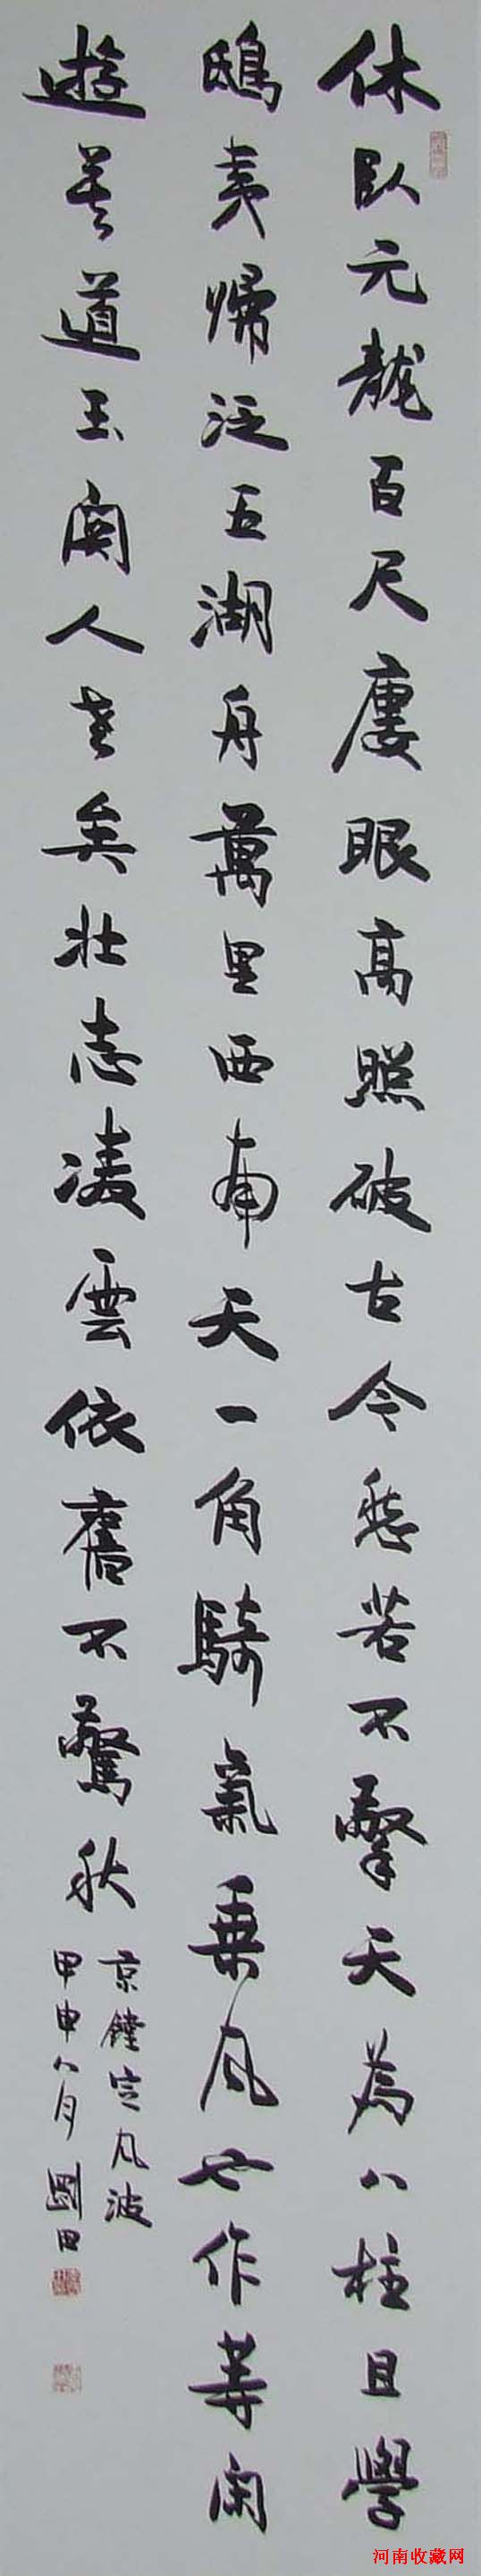 休臥元龍百尺廔眼高照破古今愁若不擎天為八柱且學
鴟夷歸泛五湖舟萬里西南天一角騎氣乘風也作等閑
遊莫道玉關人老矣壯志凌雲依舊不驚秋
京鏜定风波
甲申八月劉田
河南收藏网